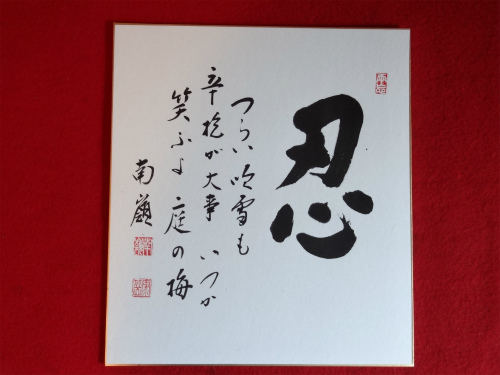 忍
つらい吹雪も
辛抱が大事 いつか
笑ふよ 庭の梅
南嶺